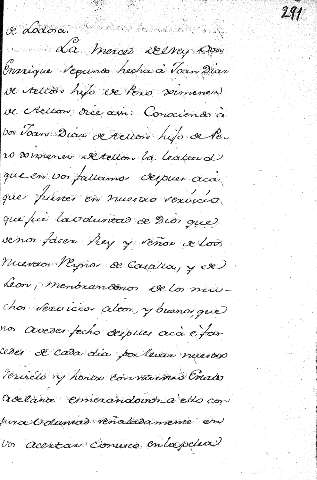 291
de Lodosa.
La Merced del Rey Don
Enrrique segundo hecha á Joan Diaz
de Aellon hijo de Pero Ximenez
de Aellon, dice asi: Conociendo á
vos Joan Diaz de Aellon hijo de Pe-
ro Ximenez de Aellon la lealtad
que en vos fallamos despues acá,
que fuistes en nuestro servicio,
que fue la voluntad de Dios que
de nos facer Rey y señor de los
nuestros Reynos de Castilla, y de
Leon, membrandonos de los mu-
chos servicios altos, y buenos que
nos avedes fecho despues acá é fa-
cedes de cada dia por levar nuestro
servicio y honra
adelante esmerandovos á ello con
pura voluntad señaladamente en
vos acertar connusco en la pelea